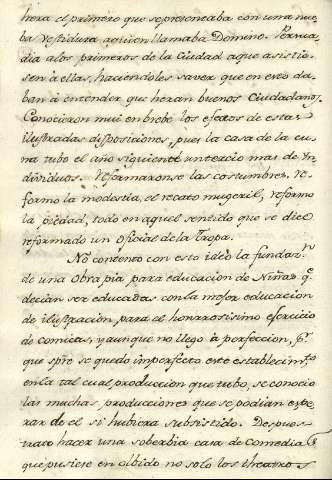 hera el primero que sepresentaba con una nue-
ba Vestidura aquien llamaba Domino. Persua-
dia alos primeros de la Ciudad aque asistie-
sen à ellas, haciendoles saver que en esto da-
ban à entender que heran buenos Ciudadanos.
Conocieron mui en brebe los efectos de estas
ilustradas disposiciones, pues la casa de la cu-
na tubo el año siguiente un tercio mas de Yn-
dividuos. Reformaronse las costumbres, re-
formo la modestia, el recato mugeril, reformo
la piedad, todo en aquel sentido que se dice
reformado un oficial de la Tropa.
No contento con esto ideò la fundazn
de una obra pia para educacion de Niñas qe
decian ser educadas con la mejor educacion
de ilustracion, para el honrrosisimo exercicio
de comicas, y aunque no llegò à perfeccion, pr
que spre se quedo imperfecto este establecimto
en la tal cual produccion que tubo, se conocio
las muchas producciones que se podian espe-
rar de el si hubiera subsistido. Despues
trato hacer una soberbia casa de Comedias
que pusiese en olbido no solo los theatros